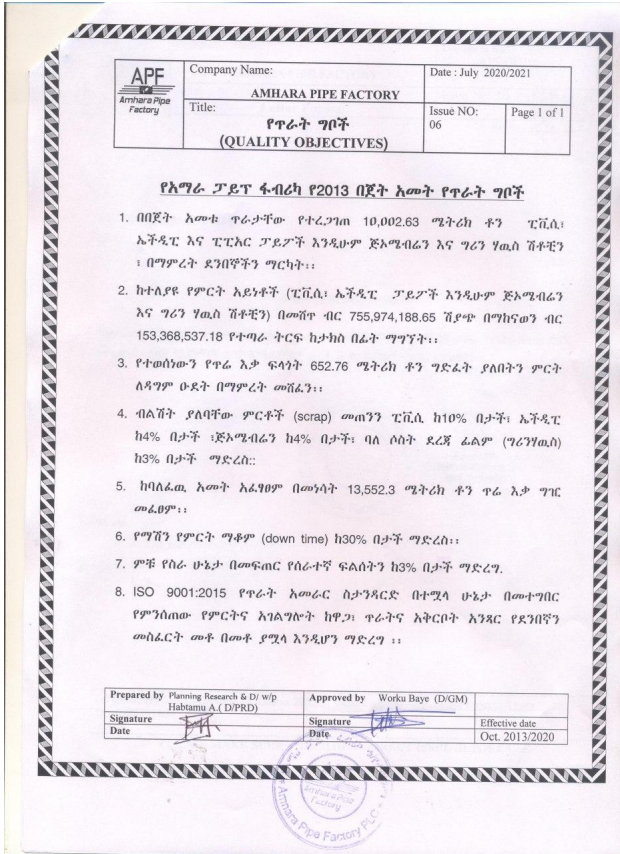 APF
Amhara Pipe
Factory
Company Name:
AMHARA PIPE FACTORY
Date : July 2020/2021
Title:
የጥራት ግቦች
(QUALITY OBJECTIVES)
Issue NO:
06
Page 1 of 1
የአማራ ፓይፕ ፋብሪካ የ2013 በጀት አመት የጥራት ግቦች
1. በበጀት አመቱ ጥራታቸው የተረጋገጠ 10,002.63 ሜትሪክ ቶን ፒቪሲ፣
ኤችዲፒ እና ፒፒአር ፓይፖች እንዲሁም ጅኦሜብሬን እና ግሪን ሃዉስ ሽቶቺን
፣ በማምረት ደንበኞችን ማርካት፡፡
2. ከተለያዩ የምርት አይነቶች (ፒቪሲ፣ ኤችዲፒ ፓይፖች እንዲሁም ጅኦሜብሬን
እና ግሪን ሃዉስ ሽቶቺን) በመሸጥ ብር 755,974,188.65 ሽያጭ በማከናወን ብር
153,368,537.18 የተጣራ ትርፍ ከታክስ በፊት ማግኘት፡፡
3. የተወሰነውን የጥሬ እቃ ፍላጎት 652.76 ሜትሪክ ቶን ግድፈት ያለበትን ምርት
ለዳግም ዑደት በማምረት መሸፈን፡፡
4. ብልሽት ያለባቸው ምርቶች (scrap) መጠንን ፒቪሲ ከ10% በታች፣ ኤችዲፒ
ከ4% በታች ፣ጅኦሜብሬን ከ4% በታች፣ ባለ ሶስት ደረጃ ፊልም (ግሪንሃዉስ)
ከ3% በታች ማድረስ::
5. ከባለፈዉ አመት አፈፃፀም በመነሳት 13,552.3 ሜትሪክ ቶን ጥሬ እቃ ግዢ
መፈፀም፡፡
6. የማሽን የምርት ማቆም (down time) ከ30% በታች ማድረስ፡፡
7. ምቹ የስራ ሁኔታ በመፍጠር የሰራተኛ ፍልሰትን ከ3% በታች ማድረግ.
8. ISO 9001:2015 የጥራት አመራር ስታንዳርድ በተሟላ ሁኔታ በመተግበር
የምንሰጠው የምርትና አገልግሎት ከዋጋ፣ ጥራትና አቅርቦት አንጻር የደንበኛን
መስፈርት መቶ በመቶ ያሟላ እንዲሆን ማድረግ ፡፡
Prepared by Planning Research & D/ w/p
Habtamu A.( D/PRD)
Approved by Worku Baye (D/GM)
Signature
Date
Signature
Date
Effective date
Oct. 2013/2020
Amhara Pipe
Factory
Amhara Pipe Factory PLC